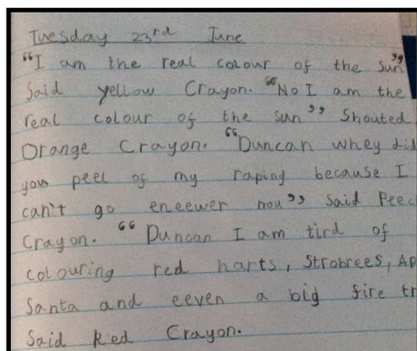 Tuesday 23rd June
"I am the real colour of the sun"
said yellow Crayon. "No I am the
real colour of the sun" Shouted
Orange Crayon. "Duncan whey did
you peel of my raping because I
can't go eneewer nou" said Peec
Crayon. "Duncan I am tird of
colouring red harts, Strobrees, Ap
Santa and eeven a big fire tr
Said Red Crayon.